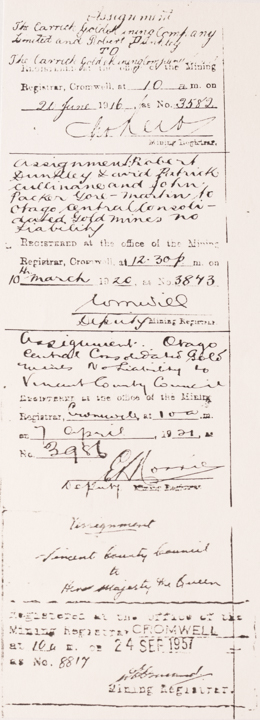 Assignment
The Carrick Gold Mining Company
Limited and Robert Dunkley
TO
The Carrick Gold Mining Company
REGISTERED at the office of the Mining
Registrar, Cromwell, at 10 a.m. on
21 June 1916, as No. 3582
Mining Registrar.
Assignment Robert
Dunkley David Patrick
Cullinane and John
Packer Gore-Martin to
Otago Central Consoli-
dated Gold Mines No
Liability
REGISTERED at the office of the Mining
Registrar, Cromwell, at 12.30 p.m. on
10th March 1920, as No. 3843
Deputy Mining Registrar.
Assignment. Otago
Central Consolidated Gold
Mines No Liability to
Vincent County Council
REGISTERED at the office of the Mining
Registrar, Cromwell, at 10 a.m.
on 7 April, 1921, as
No. 3986
Deputy Mining Registrar
Assignment
Vincent County Council
to
Her Majesty the Queen
Registered at the office of the
Mining Registrar CROMWELL
at 10 a.m. on 24 SEP 1957
as No. 8817
Mining Registrar.